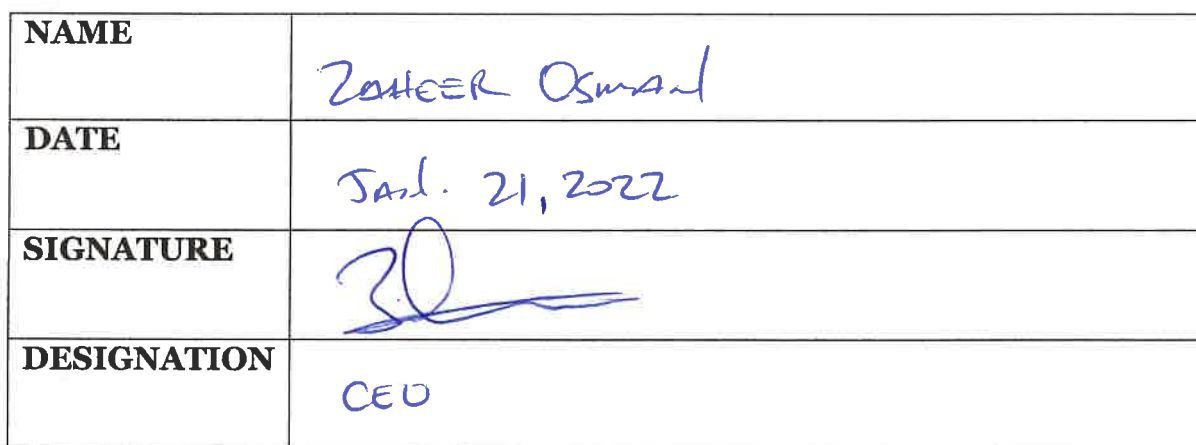 NAME
ZAHEER OSMAN
DATE
JAN. 21, 2022
SIGNATURE
DESIGNATION
CEO